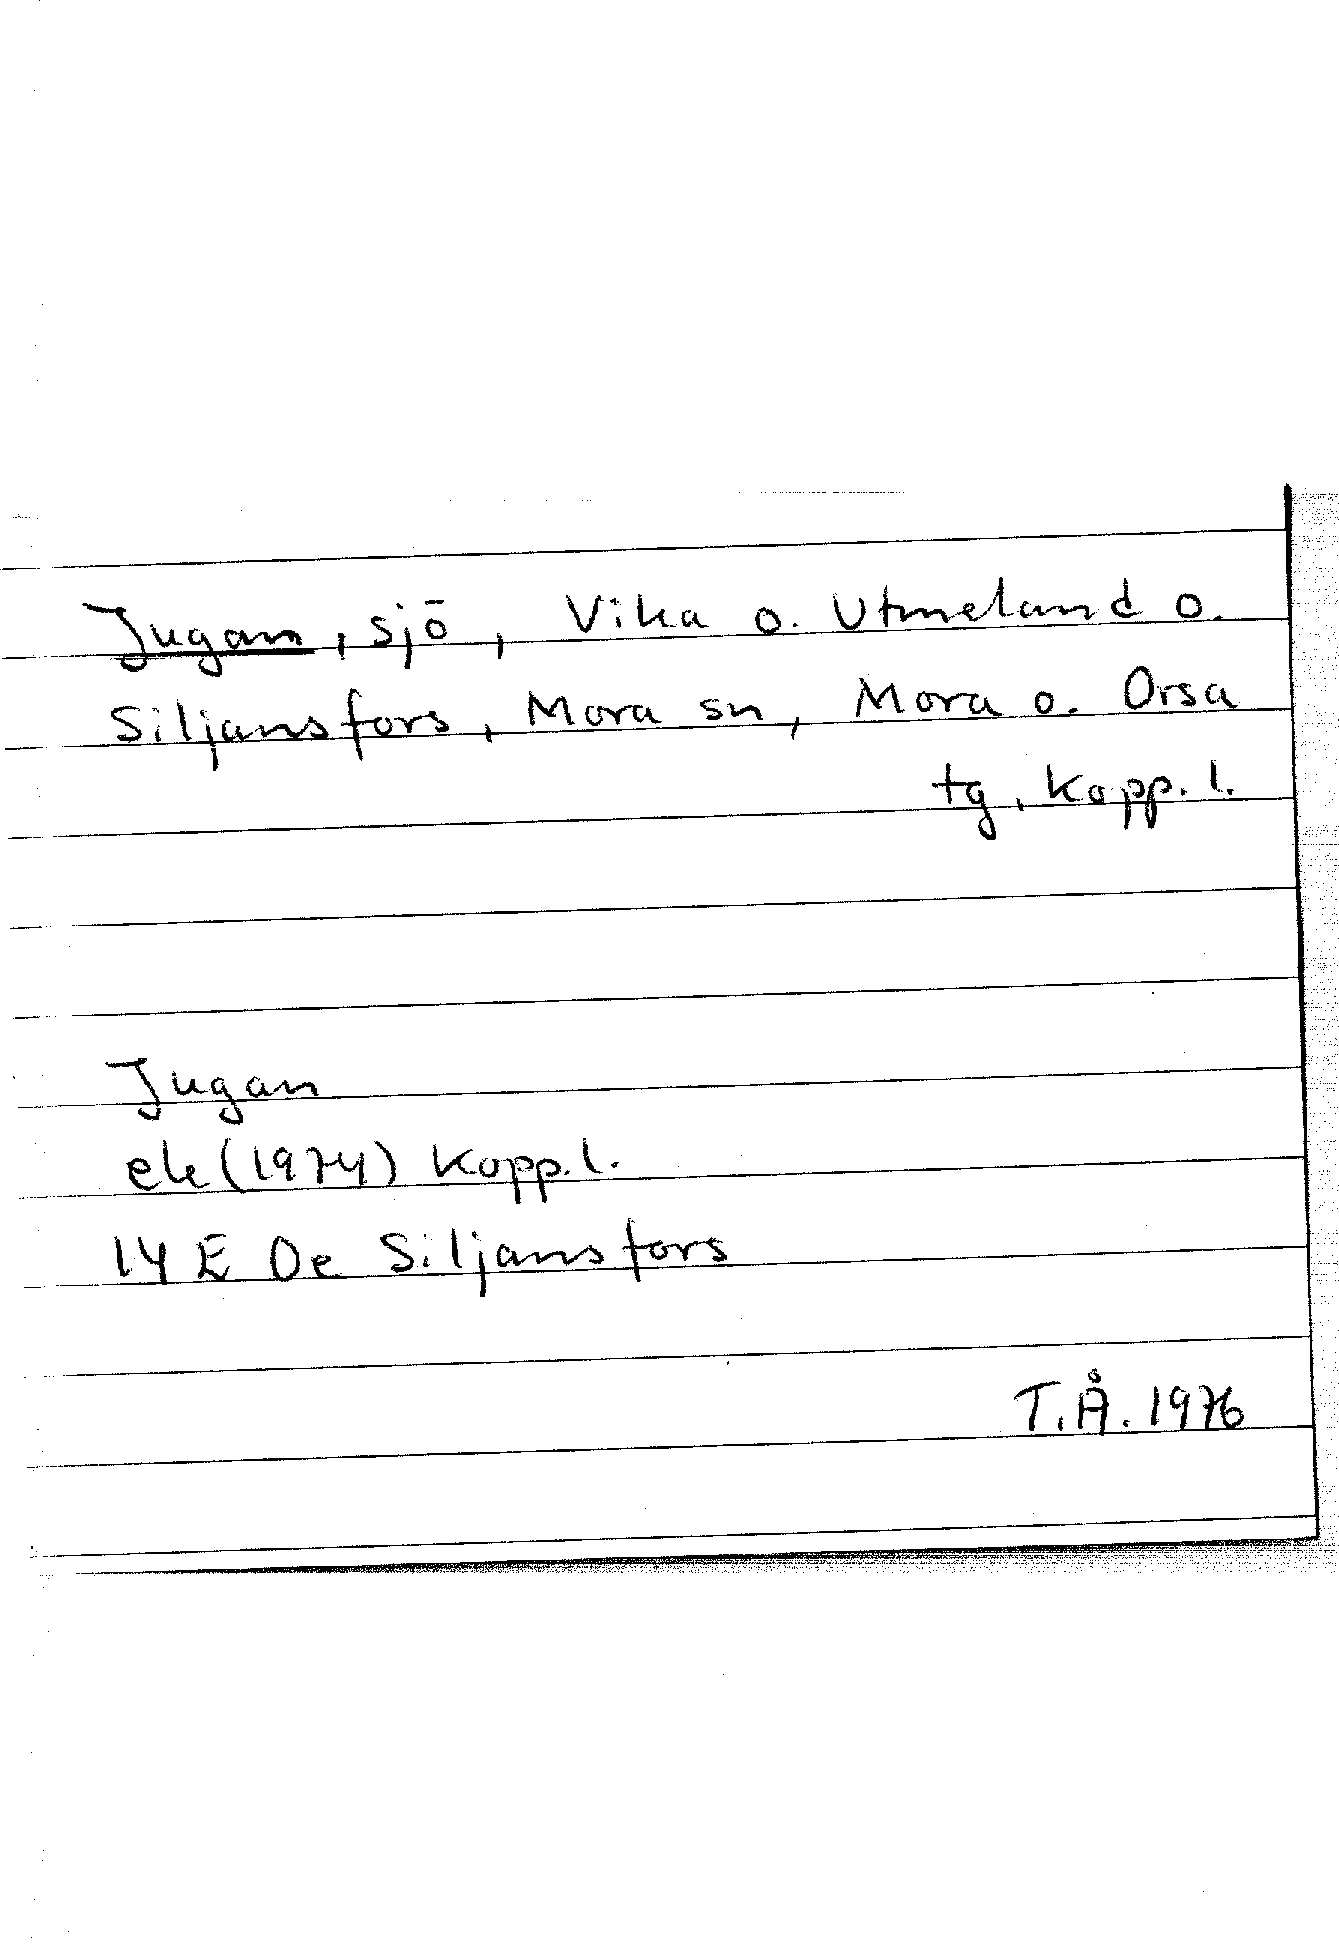 Jugan, sjö, Vika o. Utmeland o.
Siljansfors, Mora sn, Mora o. Orsa
tg, Kopp. l.
Jugan
ek (1974) Kopp. l.
14 E 0e Siljansfors
T.Å. 1976